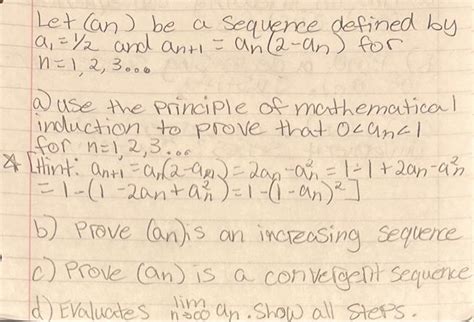 Let (an) be a sequence defined by
a₁ = 1/2 and an+1 = an(2-an) for
n=1, 2, 3...
a) use the principle of mathematical
induction to prove that 0<an<1
for n=1, 2, 3...
[Hint: an+1 = an(2-an) = 2an - an² = 1-1+2an-an²
= 1-(1-2an+an²) = 1-(1-an)²]
b) Prove (an) is an increasing sequence
c) Prove (an) is a convergent sequence
d) Evaluates lim n→∞ an. Show all steps.